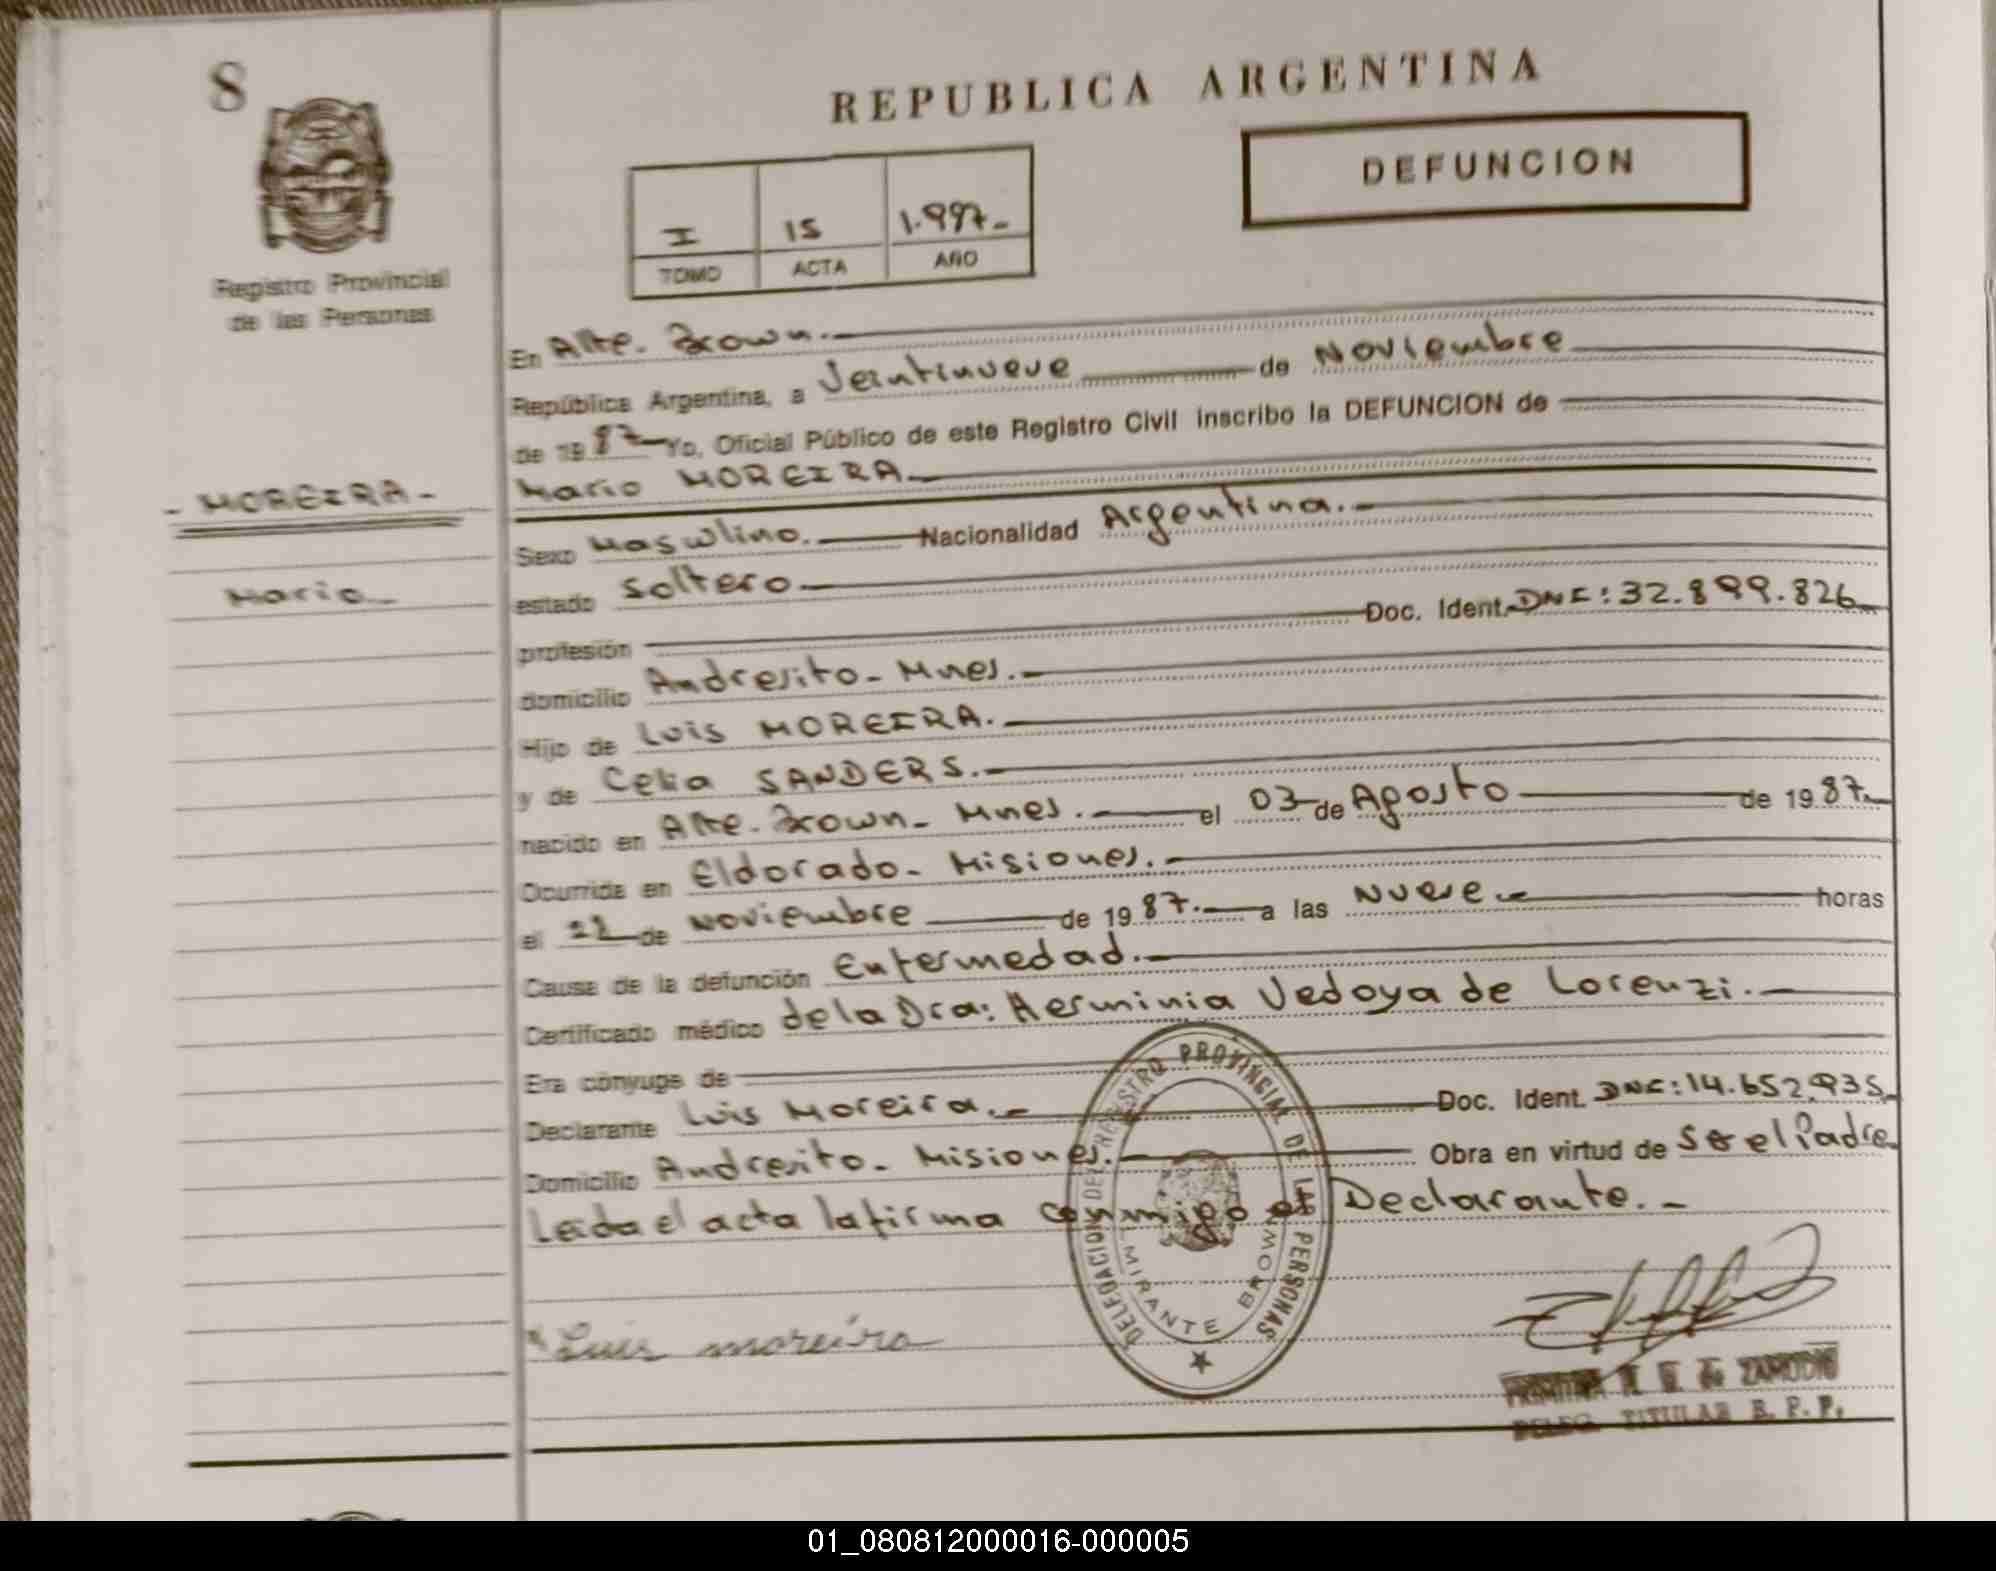 8
REPUBLICA ARGENTINA
DEFUNCION
I 15 1.997-
TOMO ACTA AÑO
Registro Provincial
de las Personas
En Alte. Brown.-
República Argentina, a Veintinueve de Noviembre
de 1987- Yo, Oficial Público de este Registro Civil inscribo la DEFUNCION de
- MOREIRA -
Mario MOREIRA.-
Sexo Masculino. Nacionalidad Argentina.-
Mario-
estado Soltero
profesión Doc. Ident. DNI: 32.899.826
domicilio Andresito- Mnes.-
Hijo de Luis MOREIRA.
y de Celia SANDERS.-
nacido en Alte. Brown- Mnes. el 03 de Agosto de 1987.
Ocurrida en Eldorado- Misiones.-
el de Noviembre de 1987.- a las Nueve.- horas
Causa de la defunción Enfermedad.-
Certificado médico de la Dra: Herminia Vedoya de Lorenzi.-
Era cónyuge de
Declarante Luis Moreira.- Doc. Ident. DNI: 14.652.935
Domicilio Andresito- Misiones. Obra en virtud de el Padre
Leida el acta la firma conmigo el Declarante.-
DELEGACION DEL REGISTRO PROVINCIAL DE LAS PERSONAS
ALMIRANTE BROWN
Luis moreira
DE ZAMUDIO
DELEG. TITULAR R. P. P.
01_080812000016-000005